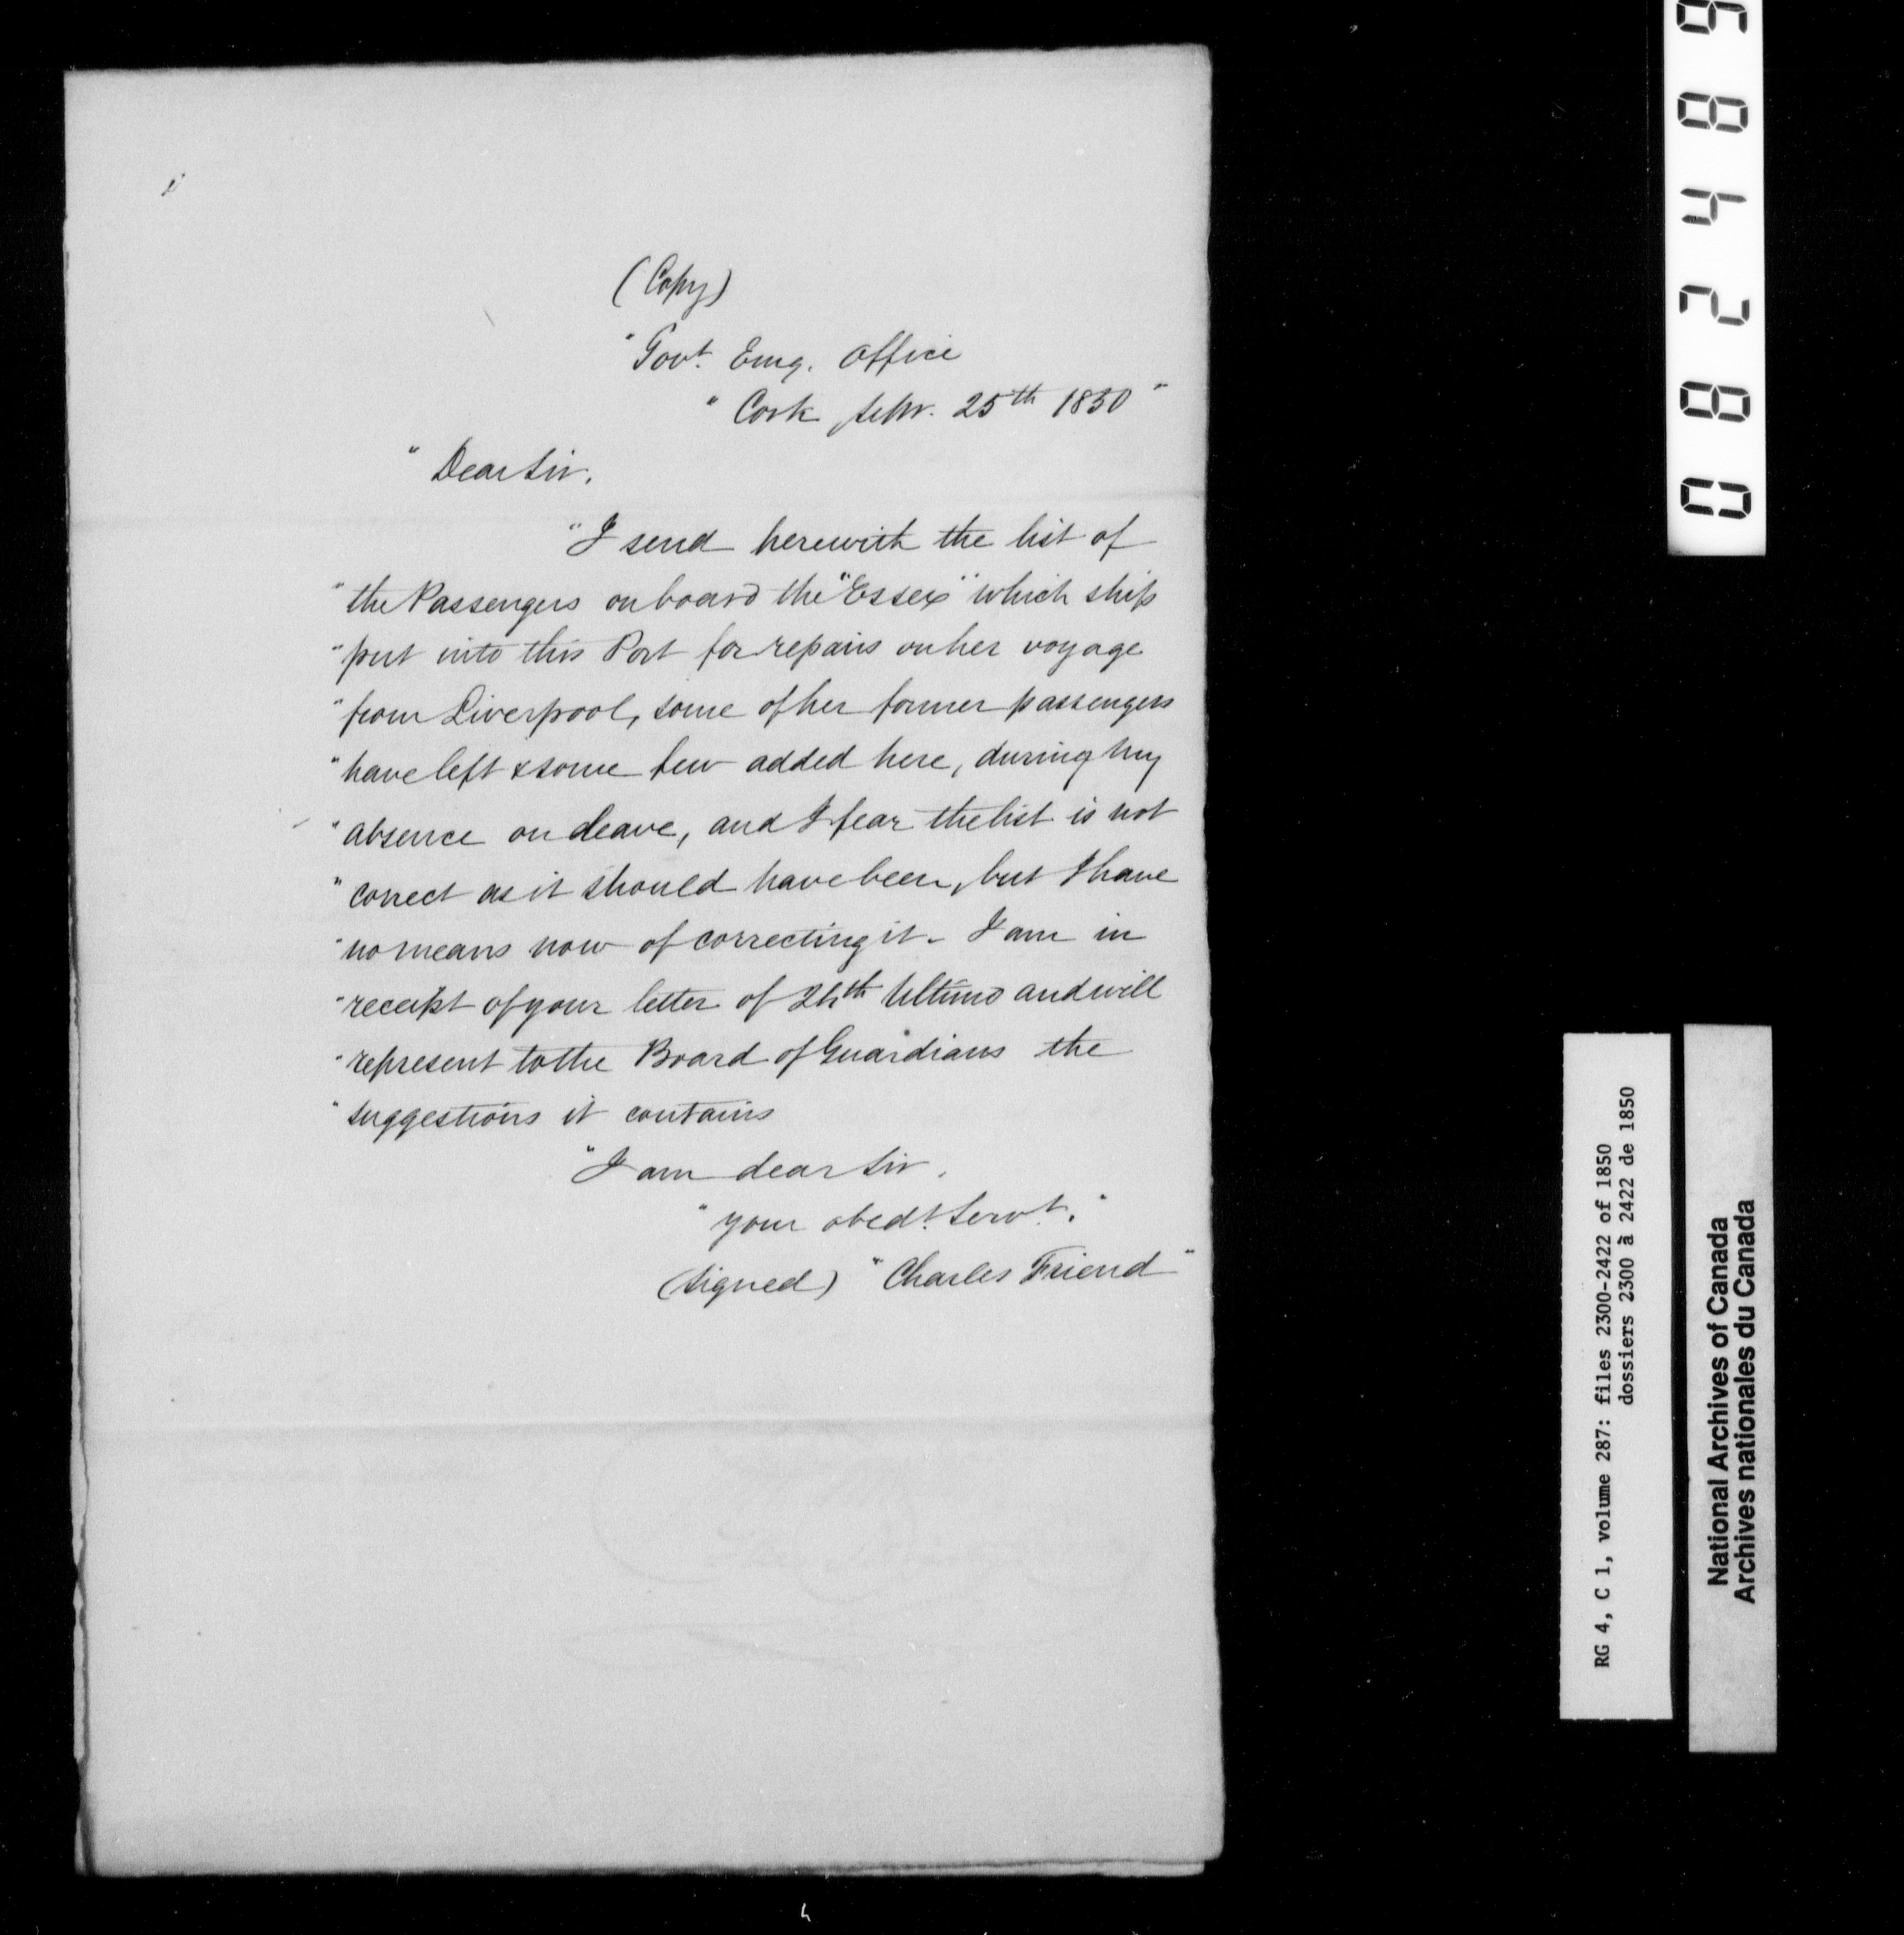 (Copy)
"Govt. Emg. Office
"Cork Sepr. 25th 1850"
"Dear Sir.
"I send herewith the list of
"the Passengers on board the "Essex" which ship
"put into this Port for repairs on her voyage
"from Liverpool, some of her former passengers
"have left & some few added here, during my
"absence on leave, and I fear the list is not
"correct as it should have been, but I have
"no means now of correcting it - I am in
"receipt of your letter of Ultimo and will
"represent to the Board of Guardians the
"suggestions it contains
"I am dear Sir.
"your obedt. Servt."
(Signed) "Charles Friend"
082489
RG 4, C 1, volume 287: files 2300-2422 of 1850
dossiers 2300 à 2422 de 1850
National Archives of Canada
Archives nationales du Canada